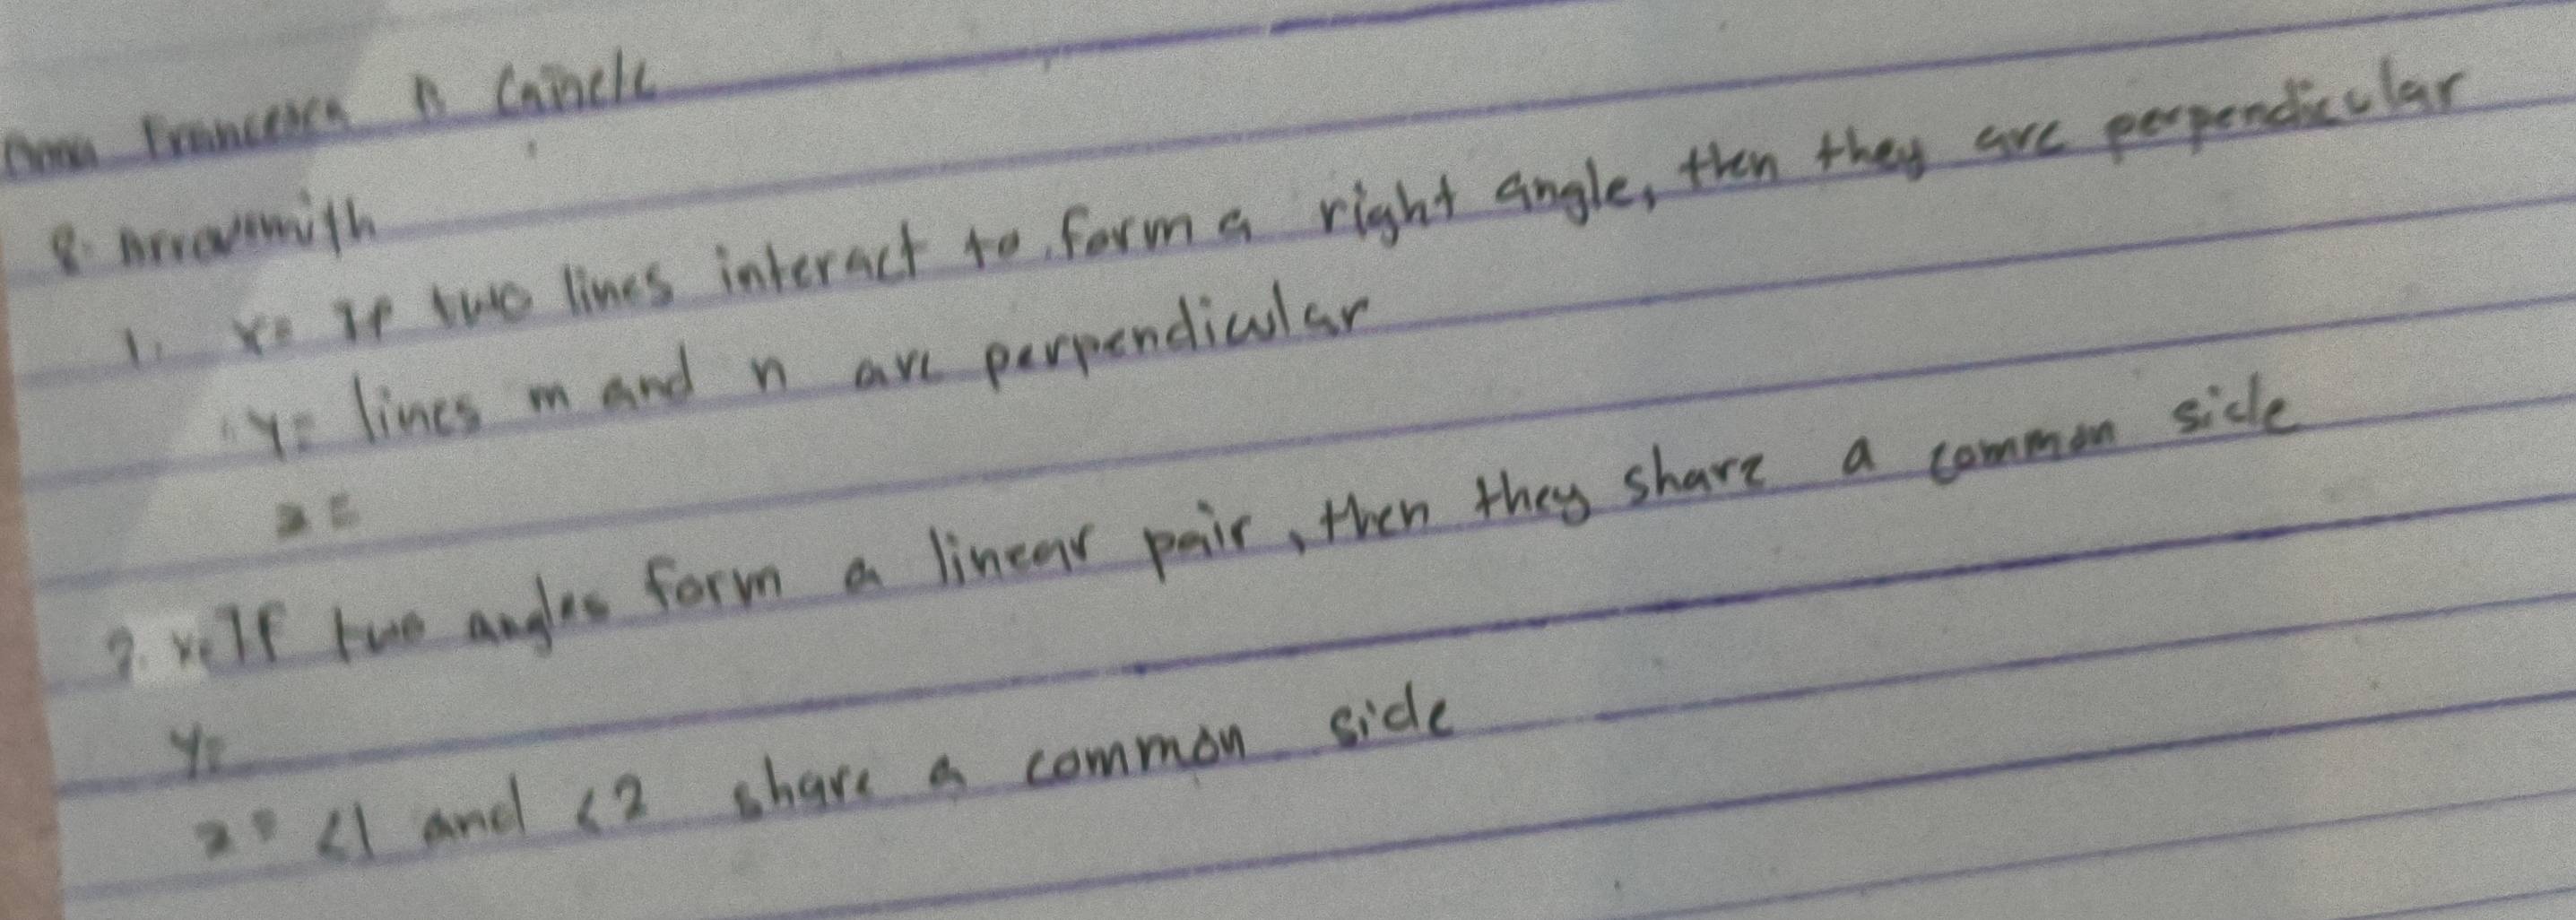 Francesca
8- Arrowsmith
1. x= If two lines interact to form a right angle, then they are perpendicular
y= lines m and n are perpendicular
z=
2. x= If two angles form a linear pair, then they share a common side
y=
z= <1 and <2 share a common side